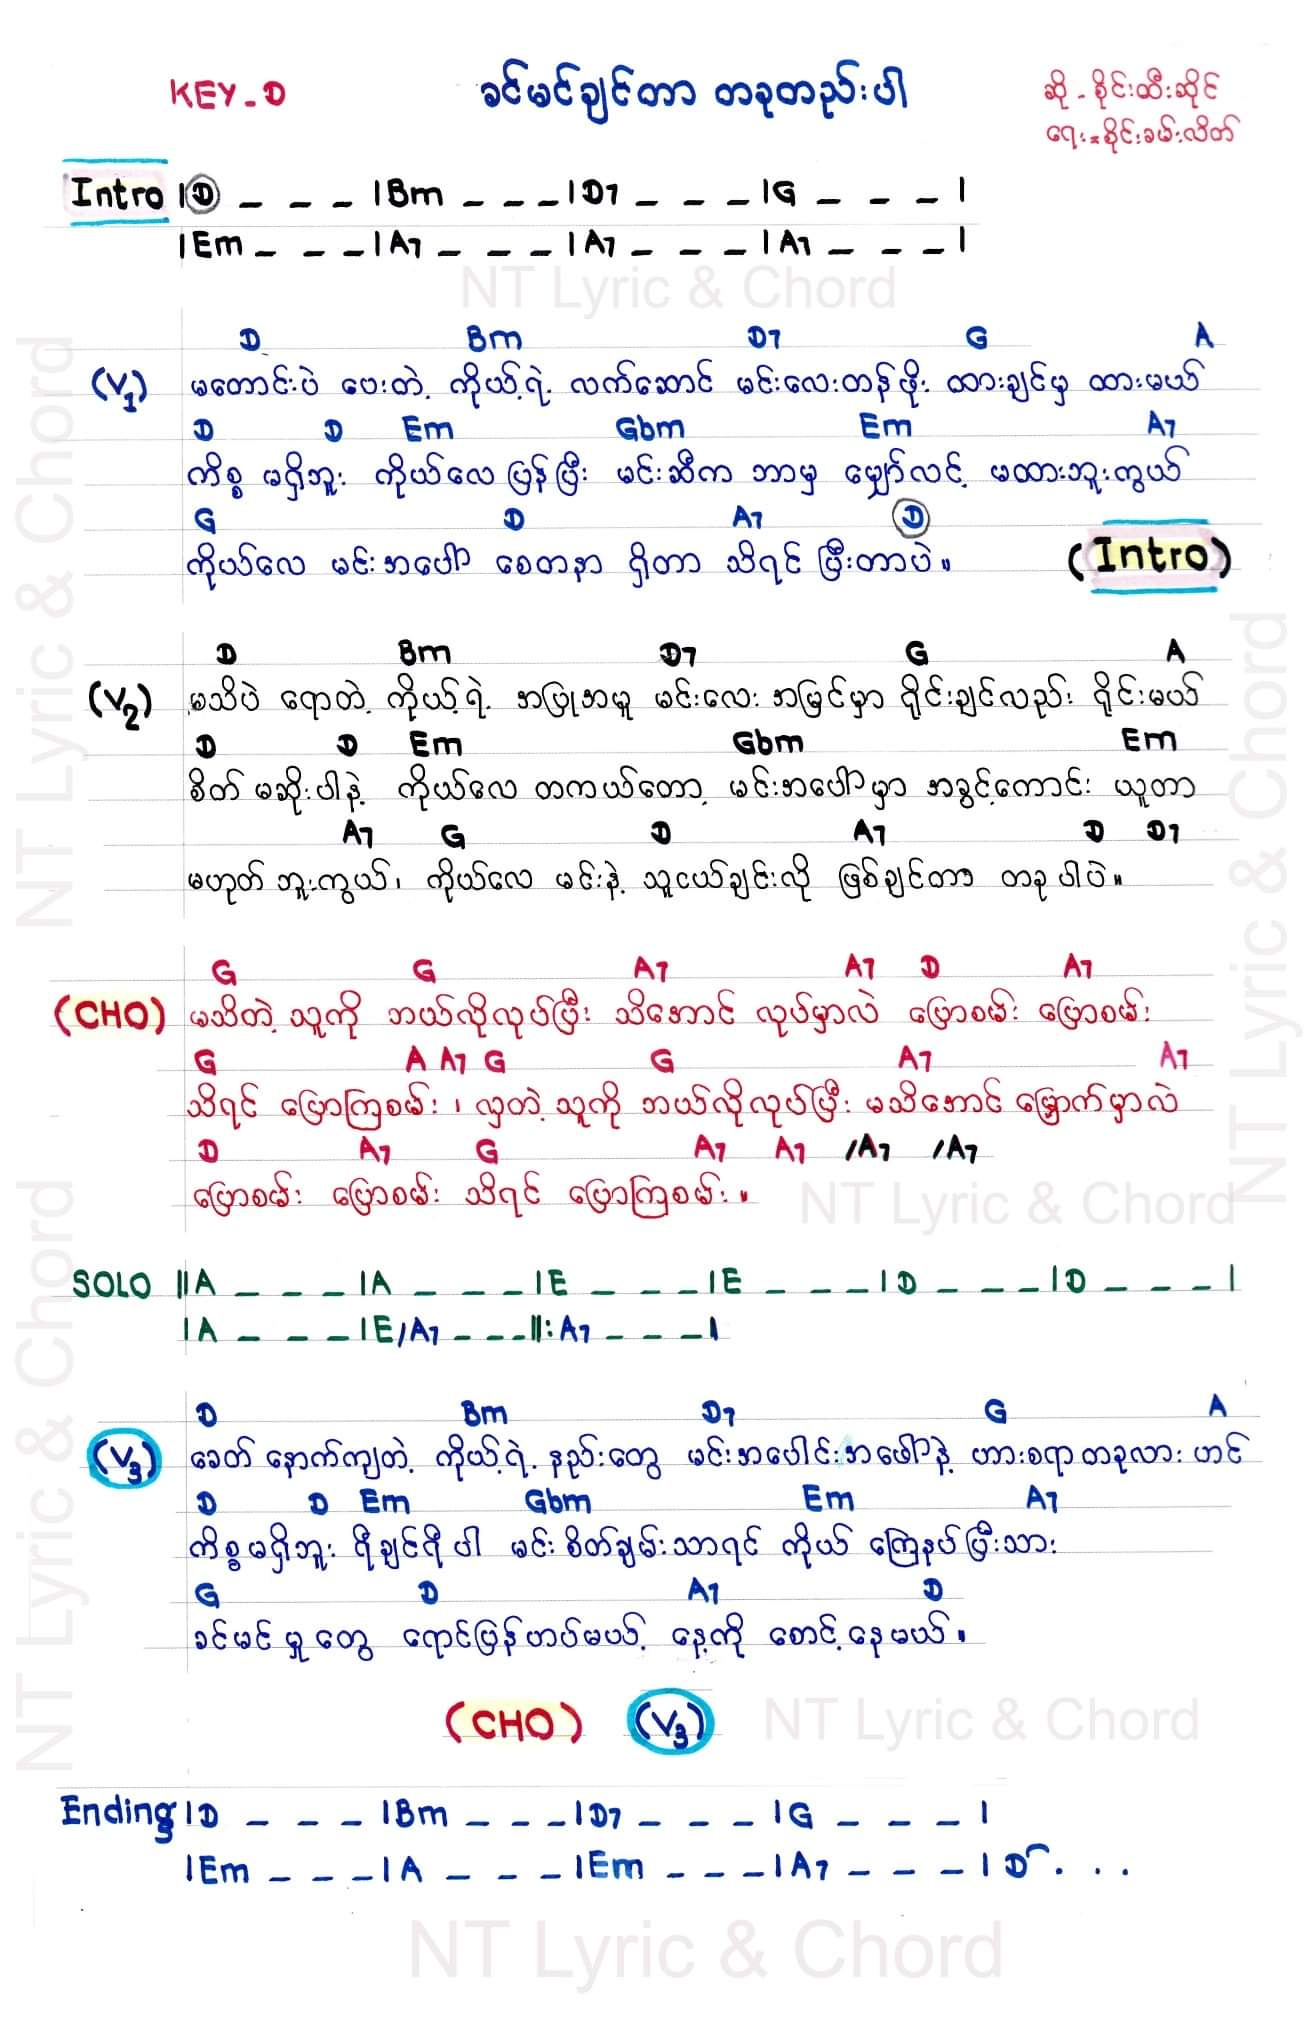 KEY-D
ခင်မင်ချင်တာ တခုတည်းပါ
ဆို - စိုင်းထီးဆိုင်
ရေး - စိုင်းခမ်းလိတ်
Intro |D _ _ _ |Bm _ _ _ |D7 _ _ _ |G _ _ _ |
|Em _ _ _ |A7 _ _ _ |A7 _ _ _ |A7 _ _ _ |
NT Lyric & Chord
D Bm D7 G A
(V1) မတောင်းပဲ ပေးတဲ့ ကိုယ့်ရဲ့ လက်ဆောင် မင်းလေးတန်ဖိုး ထားချင်မှ ထားမယ်
D D Em Gbm Em A7
ကိစ္စ မရှိဘူး ကိုယ်လေ ပြန်ပြီး မင်းဆီက ဘာမှ မျှော်လင့် မထားဘူးကွယ်
G D A7 D
ကိုယ်လေ မင်းအပေါ် စေတနာ ရှိတာ သိရင် ပြီးတာပဲ။ (Intro)
D Bm D7 G A
(V2) မသိပဲ ရောတဲ့ ကိုယ့်ရဲ့ အပြုအမူ မင်းလေး အမြင်မှာ ရိုင်းချင်လည်း ရိုင်းမယ်
D D Em Gbm Em
စိတ် မဆိုးပါနဲ့ ကိုယ်လေ တကယ်တော့ မင်းအပေါ်မှာ အခွင့်ကောင်း ယူတာ
A7 G D A7 D D7
မဟုတ် ဘူးကွယ်၊ ကိုယ်လေ မင်းနဲ့ သူငယ်ချင်းလို ဖြစ်ချင်တာ တခု ပါပဲ။
G G A7 A7 D A7
(CHO) မသိတဲ့ သူကို ဘယ်လိုလုပ်ပြီး သိအောင် လုပ်မှာလဲ ပြောစမ်း ပြောစမ်း
G A A7 G G A7 A7
သိရင် ပြောကြစမ်း ၊ လှတဲ့ သူကို ဘယ်လိုလုပ်ပြီး မသိအောင် မြှောက်မှာလဲ
D A7 G A7 A7 /A7 /A7
ပြောစမ်း ပြောစမ်း သိရင် ပြောကြစမ်း ။
NT Lyric & Chord
SOLO ||A _ _ _ |A _ _ _ |E _ _ _ |E _ _ _ |D _ _ _ |D _ _ _ |
|A _ _ _ |E/A7 _ _ _ ||: A7 _ _ _ |
D Bm D7 G A
(V3) ခေတ် နောက်ကျတဲ့ ကိုယ့်ရဲ့ နည်းတွေ မင်းအပေါင်းအဖေါ်နဲ့ ဟားစရာ တခုလား ဟင်
D D Em Gbm Em A7
ကိစ္စမရှိဘူး ရီချင်ရီ ပါ မင်း စိတ်ချမ်းသာရင် ကိုယ် ကြေနပ်ပြီးသား
G D A7 D
ခင်မင် မှု တွေ ရောင်ပြန်ဟပ်မယ့် နေ့ကို စောင့်နေမယ် ။
(CHO) (V3)
NT Lyric & Chord
Ending |D _ _ _ |Bm _ _ _ |D7 _ _ _ |G _ _ _ |
|Em _ _ _ |A _ _ _ |Em _ _ _ |A7 _ _ _ | D . . .
NT Lyric & Chord
NT Lyric & Chord
NT Lyric & Chord
NT Lyric & Chord